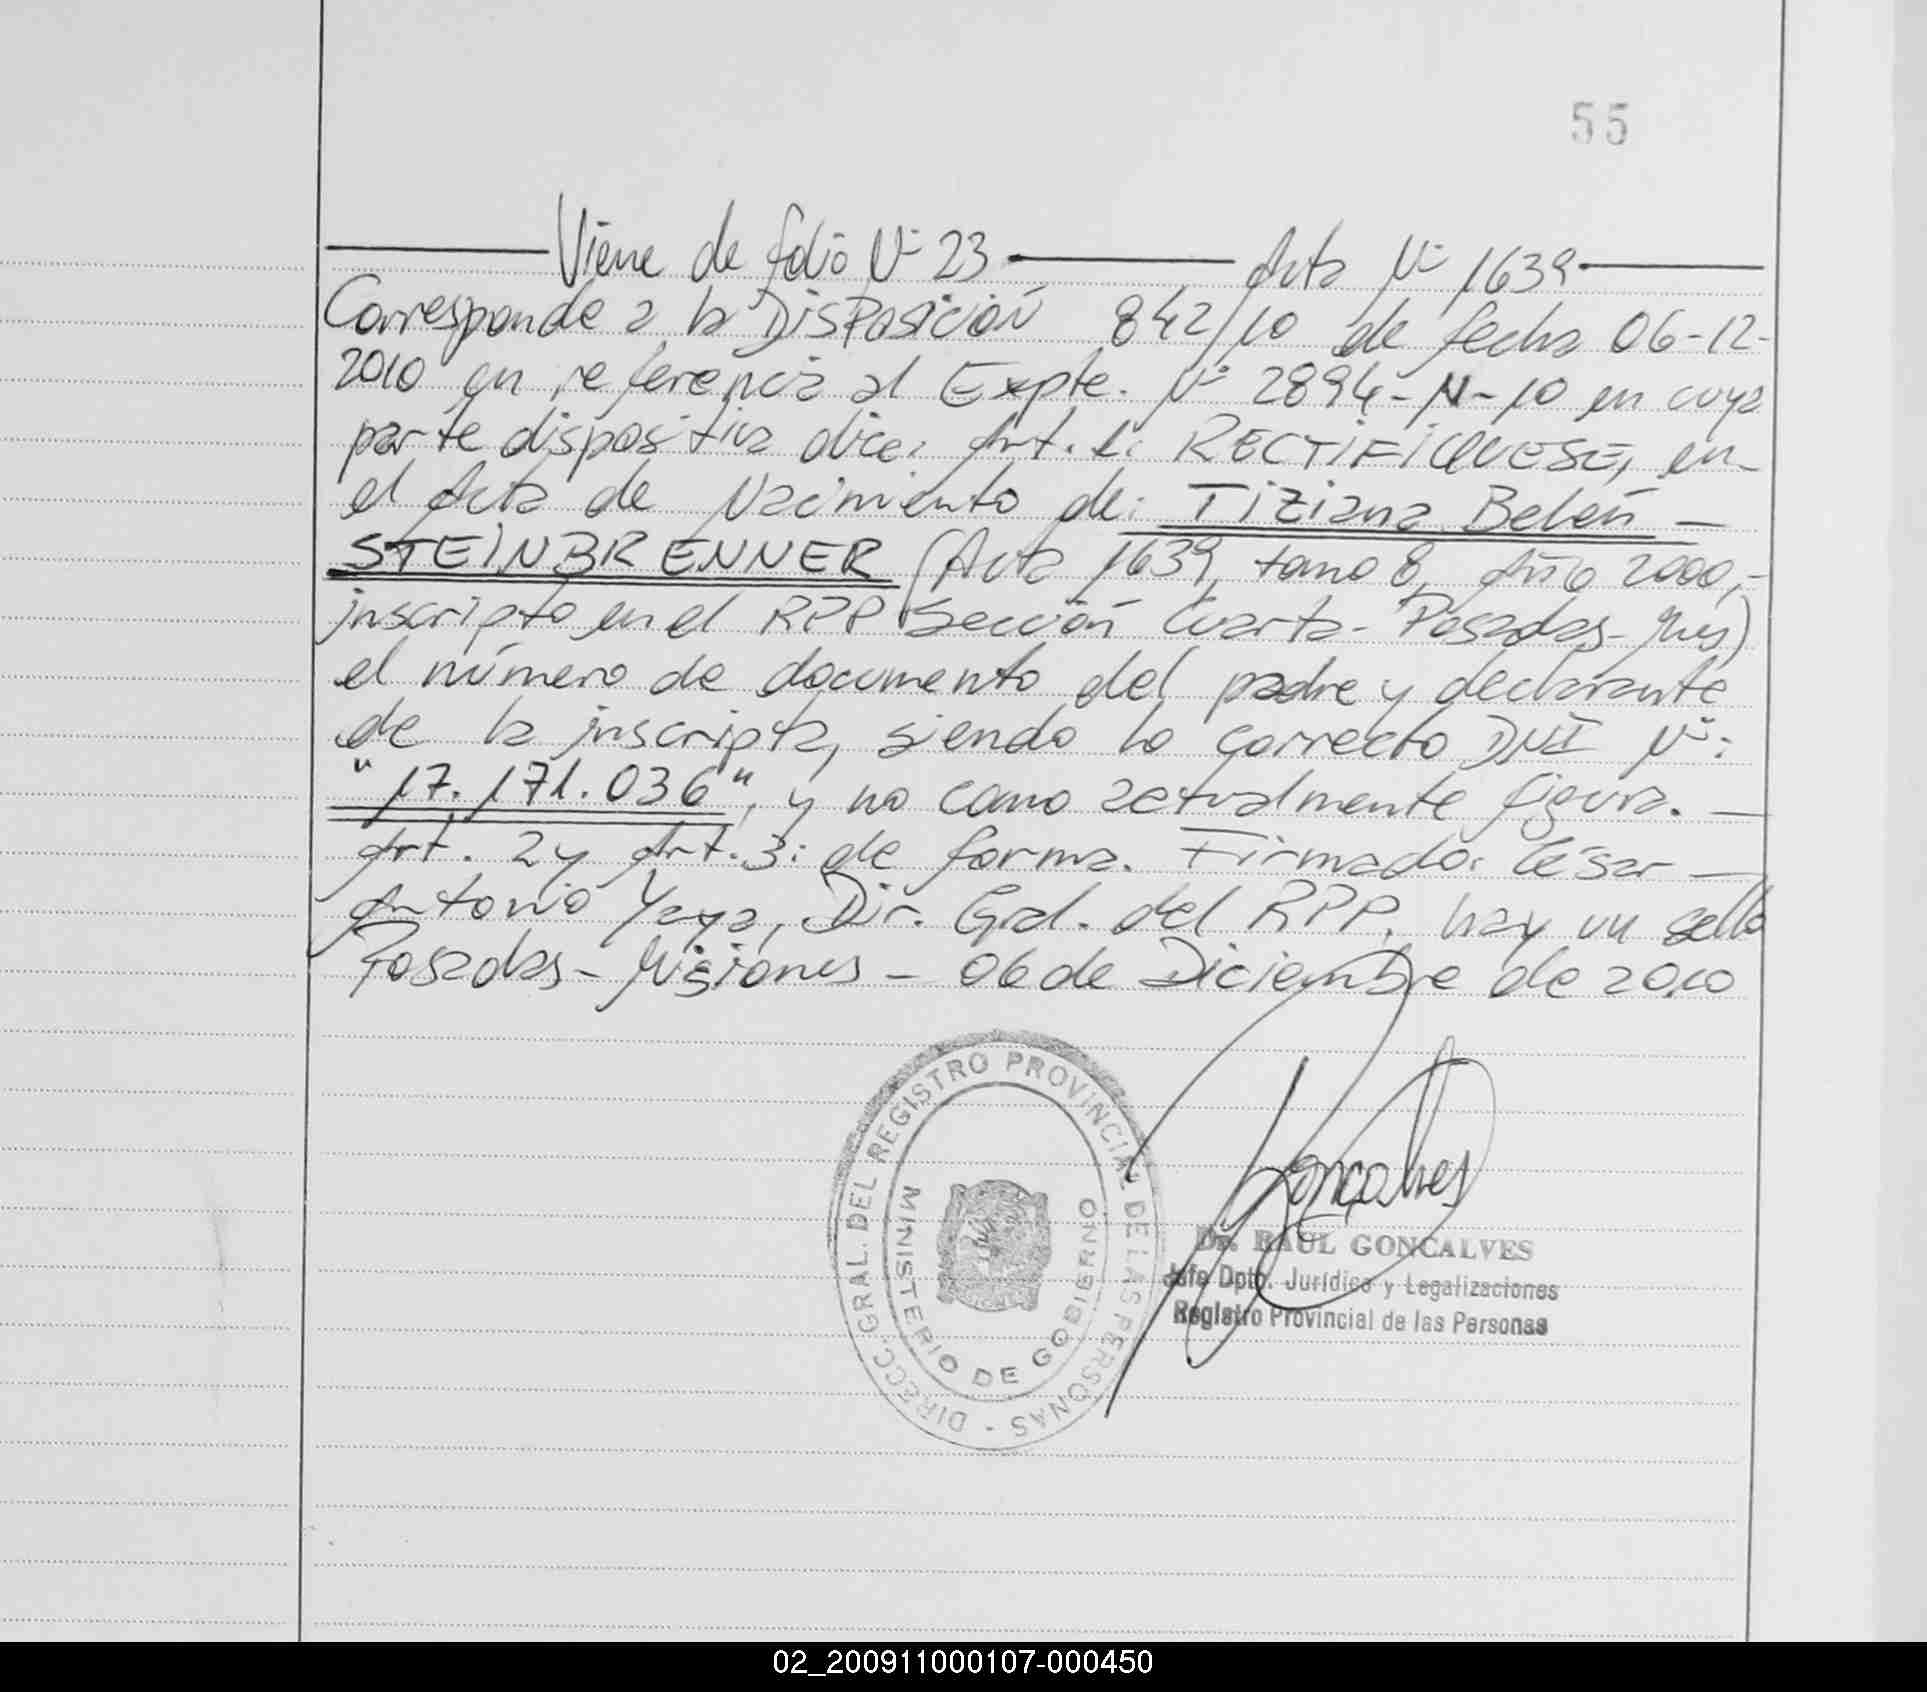 55
Viene de folio Nº 23 — Acta Nº 1639
Corresponde a la DISPOSICIÓN 842/10 de fecha 06-12-
2010 en referencia al Expte. Nº 2894-N-10 en cuya
parte dispositiva dice: Art. 1: RECTIFIQUESE, en
el Acta de Nacimiento de: Tiziana Belén
STEINBRENNER (Acta 1639, tomo 8, Año 2000,
inscripto en el RPP Sección Cuarta- Posadas- Mnes)
el número de documento del padre y declarante
de la inscripta, siendo lo correcto DNI Nº:
"17.171.036", y no como actualmente figura.
Art. 2 y Art. 3: de forma. Firmado: César
Antonio Yaya, Dir. Gral. del RPP, hay un sello
Posadas- Misiones - 06 de Diciembre de 2010
DIRECC. GRAL. DEL REGISTRO PROVINCIAL DE LAS PERSONAS -
MINISTERIO DE GOBIERNO
Gonçalves
Dr. RAUL GONCALVES
Jefe Dpto. Jurídico y Legalizaciones
Registro Provincial de las Personas
02_200911000107-000450